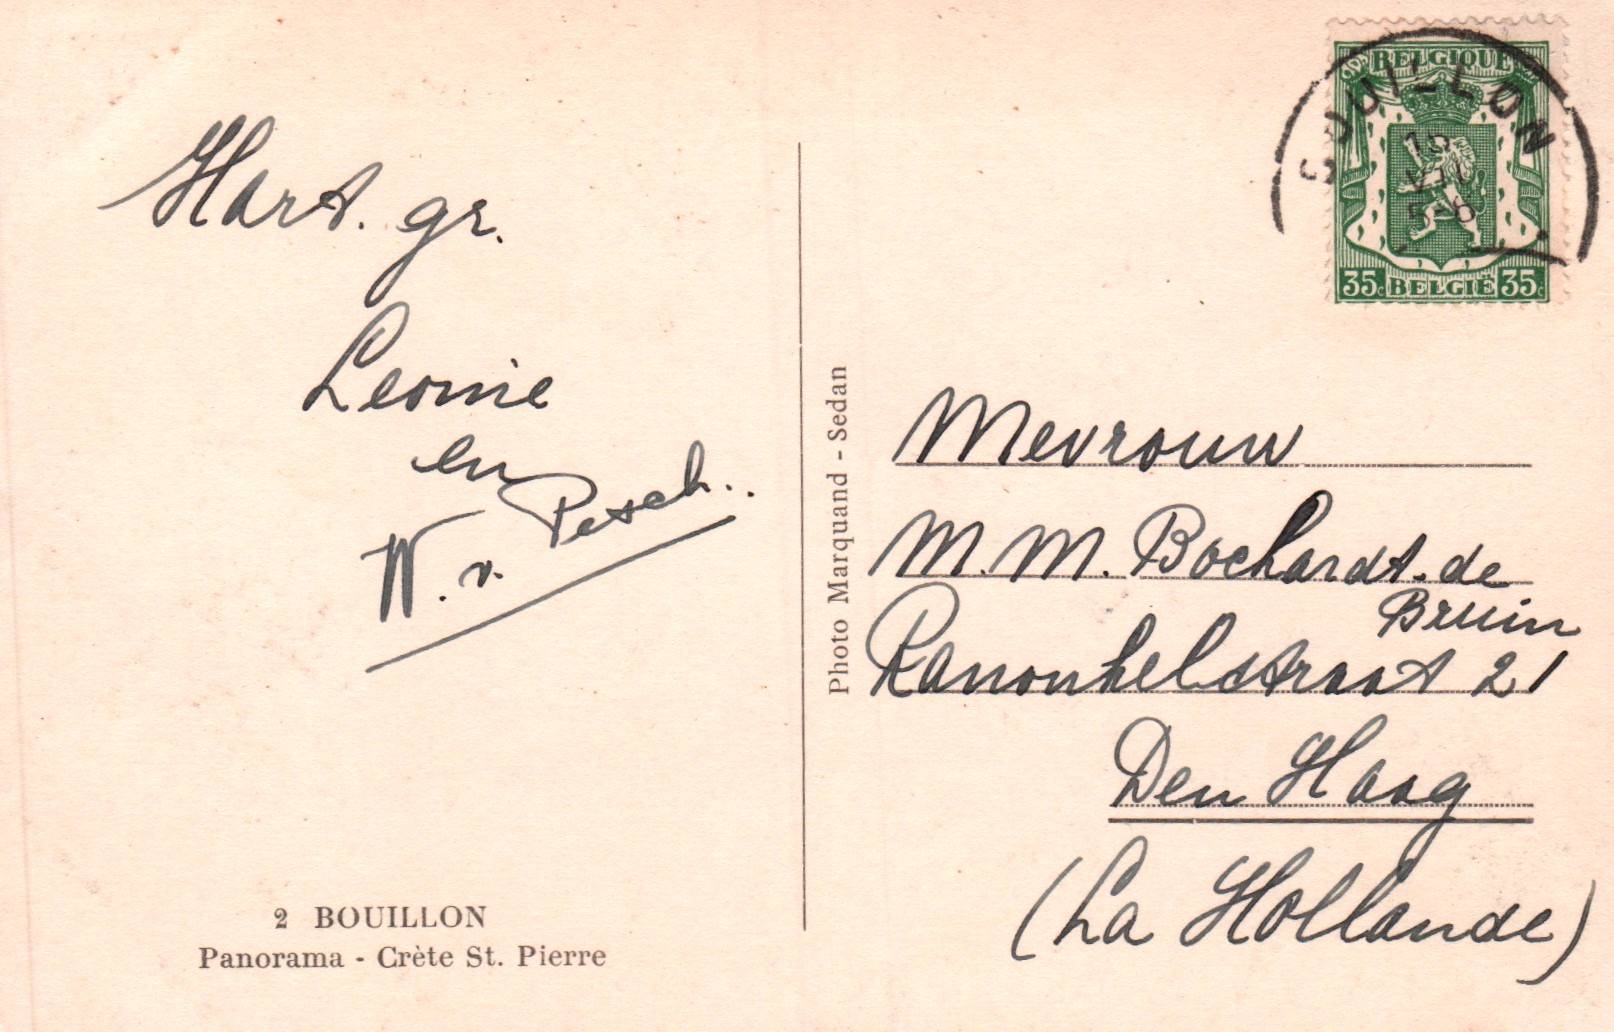 Hart. gr.
Leonie
en
W. v. Pesch..
2 BOUILLON
Panorama - Crète St. Pierre
Photo Marquand - Sedan
BELGIQUE
35c BELGIË 35c
BOUILLON
Mevrouw
M. M. Bochardt. de
Bruin
Ranonkelstraat 21
Den Haag
(La Hollande)